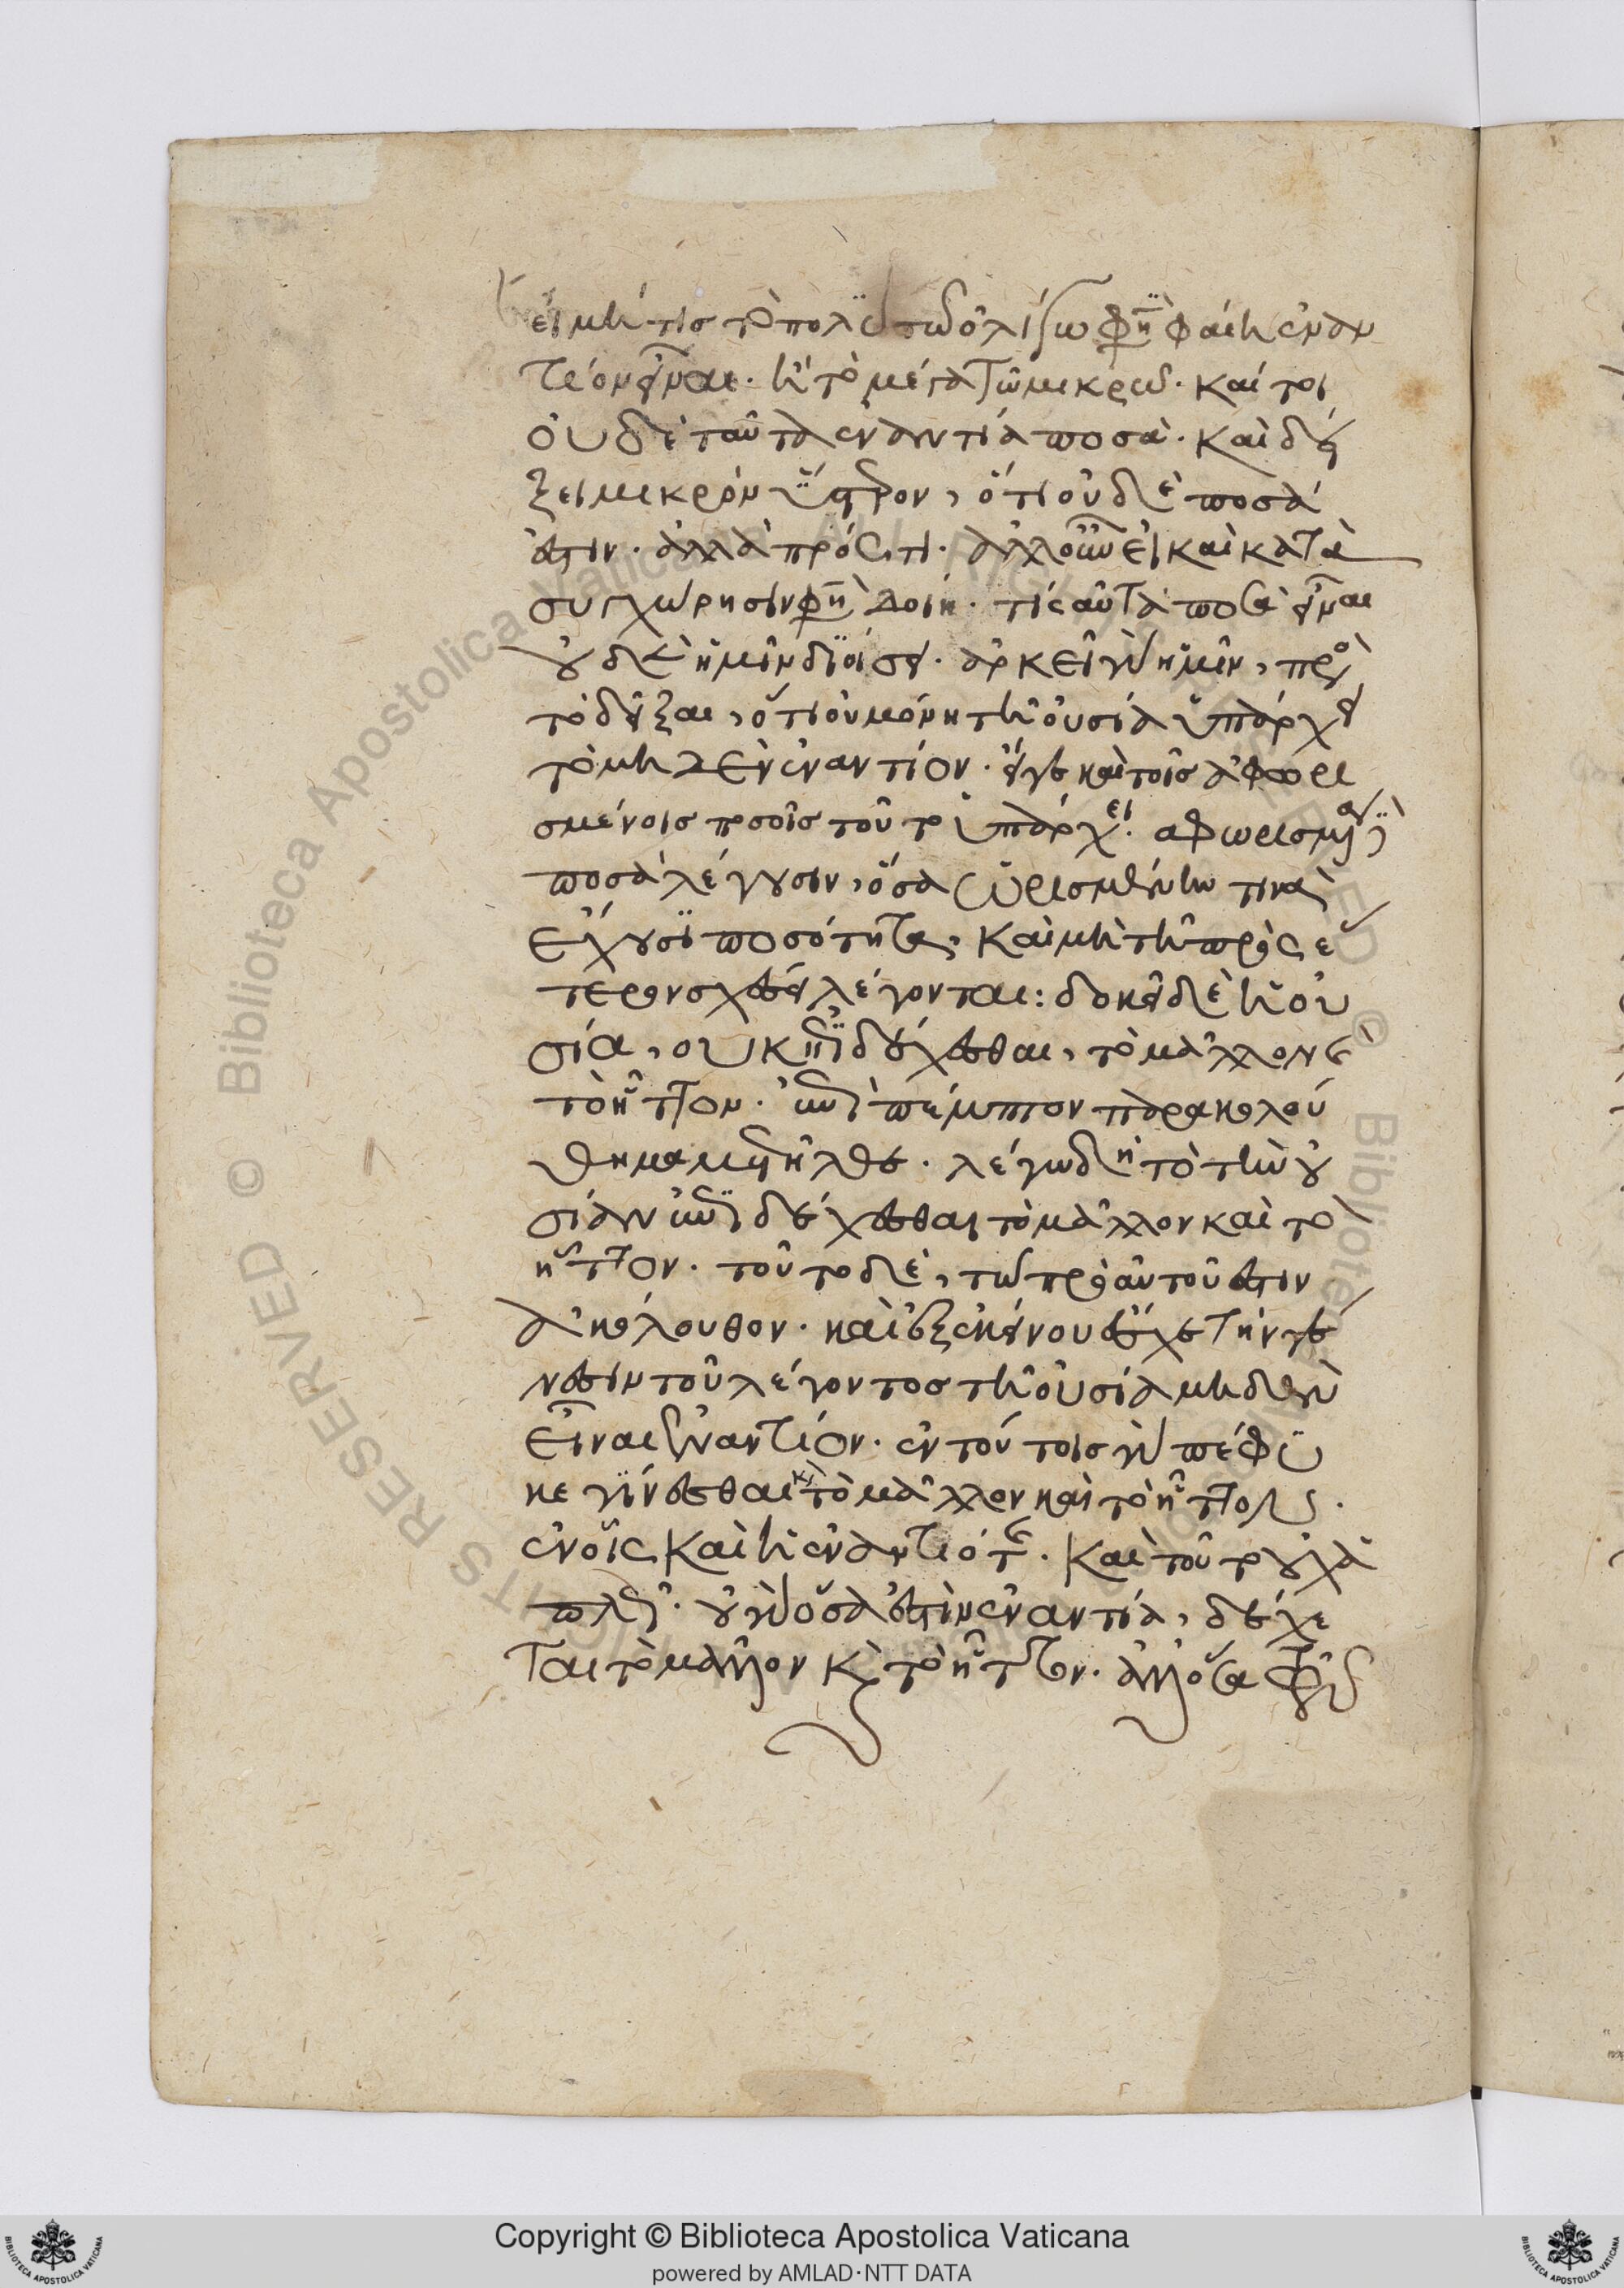 εἰ μή τις τὸ πολὺ τῷ ὀλίγῳ φησὶ φαίη ἐναν
τίον εἶναι. ἢ τὸ μέγα τῷ μικρῷ. καί τοι
οὐδὲ ταῦτα ἐναντία ποσά. καὶ δεί
ξει μικρὸν ὕστερον, ὅτι οὐδὲ ποσά
ἐστιν. ἀλλὰ πρός τι. ἀλλ' οὖν εἰ καὶ κατὰ
συγχώρησιν φησὶ δοίη τις αὐτὰ ποσὰ εἶναι
οὐδὲν ἡμῖν διοίσει. ἀρκεῖ γὰρ ἡμῖν, πρὸς
τὸ δεῖξαι, ὅτι οὐ μόνη τῇ οὐσία ὑπάρχει
τὸ μηδὲν ἐναντίον. εἴγε καὶ τοῖς ἀφορι
σμένοις ποσοῖς τοῦτο ὑπάρχει. αφωρισμένα δὲ
ποσὰ λέγουσιν, ὅσα ὡρισμένην τινὰ
ἔχουσι ποσότητα, καὶ μὴ τῇ πρὸς ἕ
τερον σχέσει λέγονται: δοκεῖ δὲ ἡ οὐ
σία, οὐκ ἐπιδέχεσθαι, τὸ μᾶλλον καὶ
τὸ ἧττον. ἐπὶ πέμπτον παρακολού
θημα μετῆλθε. λέγω δὴ τὸ τὴν οὐ
σίαν μὴ ἐπιδέχεσθαι τὸ μᾶλλον καὶ τὸ
ἧττον. τοῦτο δὲ, τῷ πρὸ αὐτοῦ ἐστιν
ἀκόλουθον. καὶ ἐξ ἐκείνου ἔσχε τὴν γέ
νεσιν τοῦ λέγοντος τῇ οὐσία μηδὲν
εἶναι ἐναντίον. ἐν τούτοις γὰρ πέφυ
κε γίνεσθαι καὶ τὸ μᾶλλον καὶ τὸ ἧττον.
ἐν οἷς καὶ ἡ ἐναντιότης. καὶ τοῦτο οὐχ ἁ
πλῶς. οὐ γὰρ ὅσα ἐστὶν ἐναντία, δέχε
ται τὸ μᾶλλον καὶ τὸ ἧττον. ἀλλ' ὅσα